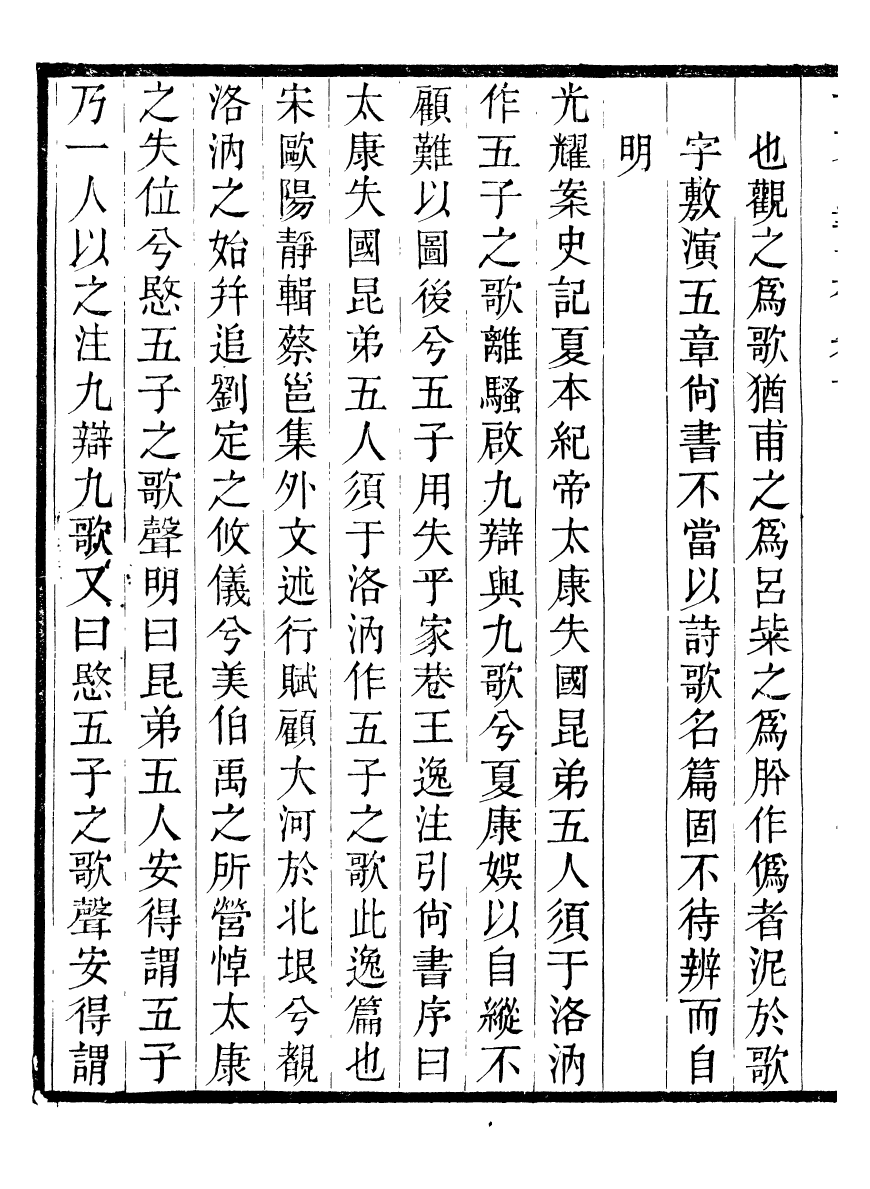 也觀之爲歌猶甫之爲呂粊之爲肸作僞者泥於歌
字敷演五章尙書不當以詩歌名篇固不待辨而自
明
光耀案史記夏本紀帝太康失國昆弟五人須于洛汭
作五子之歌離騷啟九辯與九歌兮夏康娛以自縱不
顧難以圖後兮五子用失乎家巷王逸注引尙書序曰
太康失國昆弟五人須于洛汭作五子之歌此逸篇也
宋歐陽靜輯蔡邕集外文述行賦顧大河於北垠兮覩
洛汭之始幷追劉定之攸儀兮美伯禹之所營悼太康
之失位兮愍五子之歌聲明曰昆弟五人安得謂五子
乃一人以之注九辯九歌又曰愍五子之歌聲安得謂